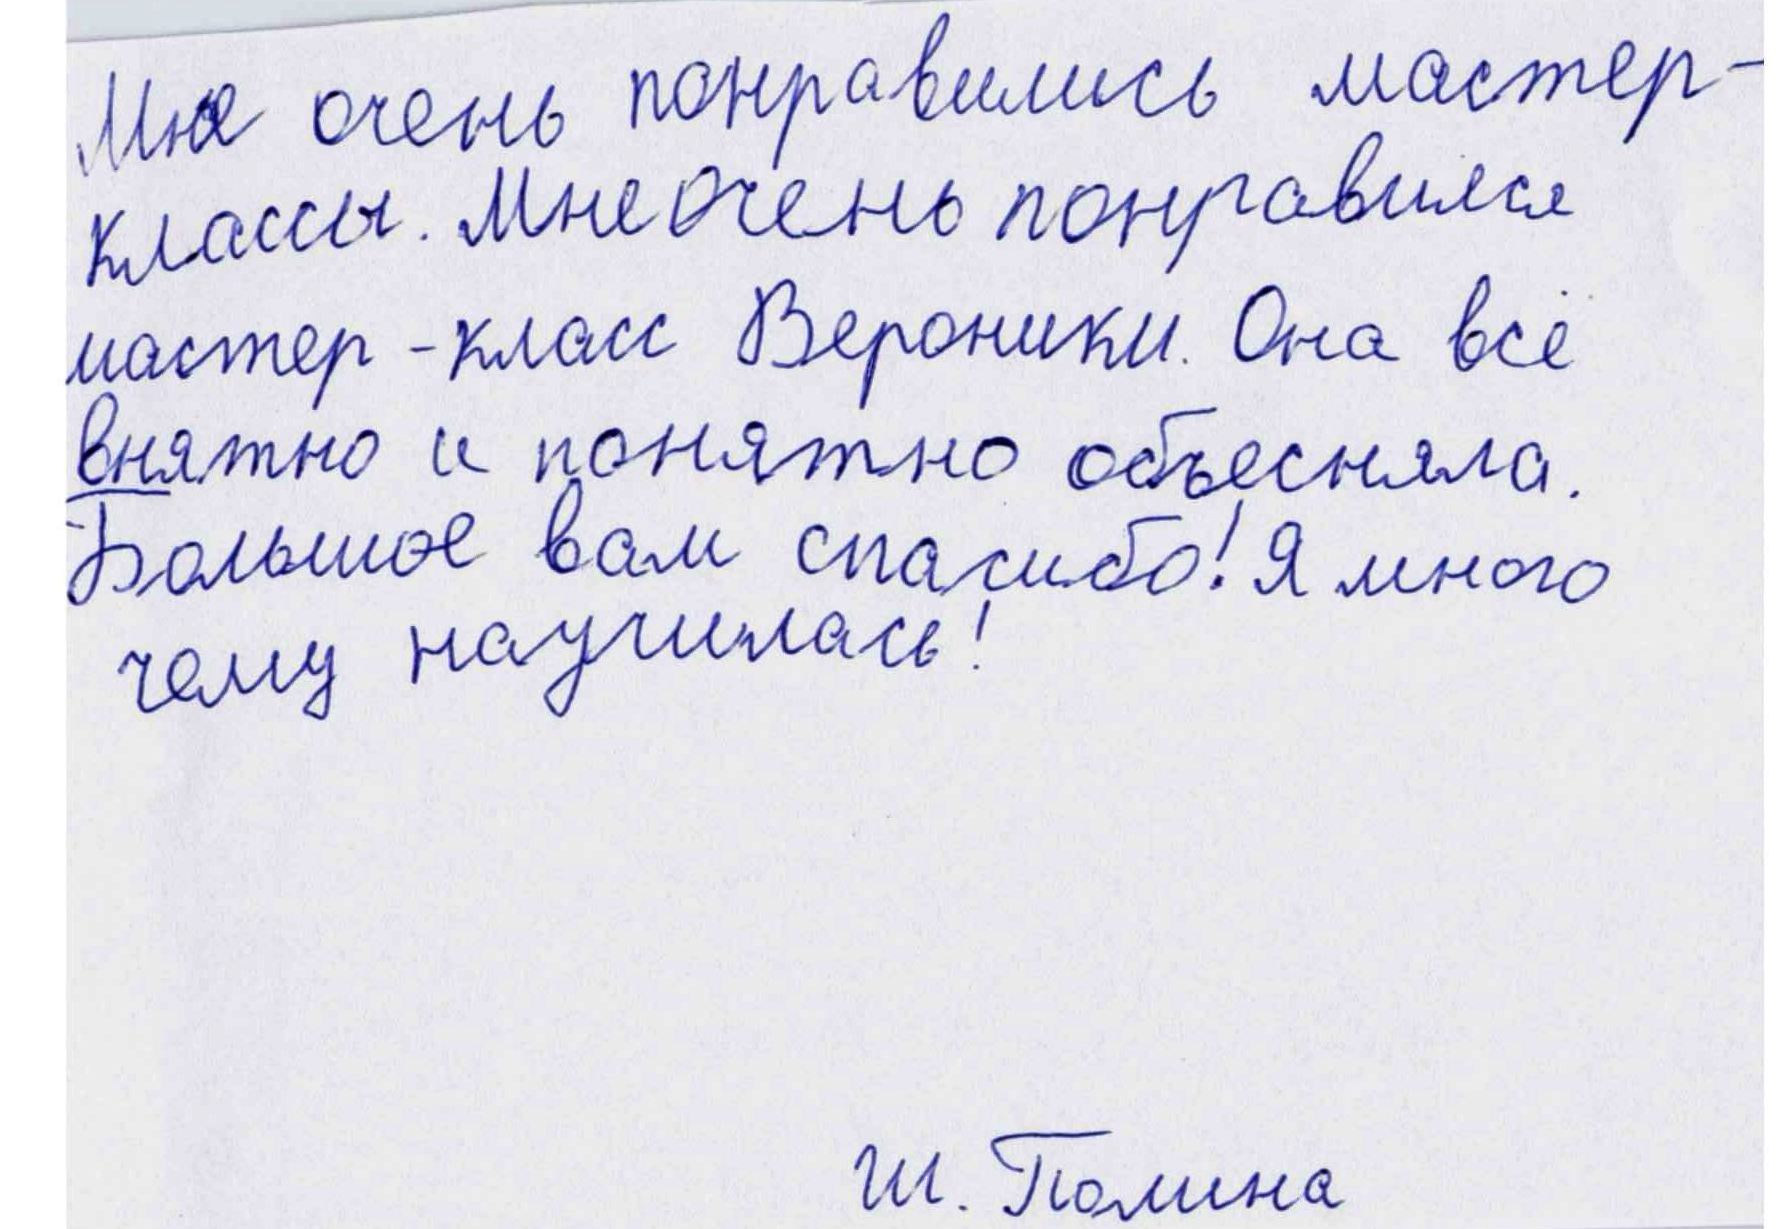 Мне очень понравились мастер-
классы. Мне очень понравился
мастер-класс Вероники. Она всё
внятно и понятно объесняла.
Большое вам спасибо! Я много
чему научилась!
Ш. Полина